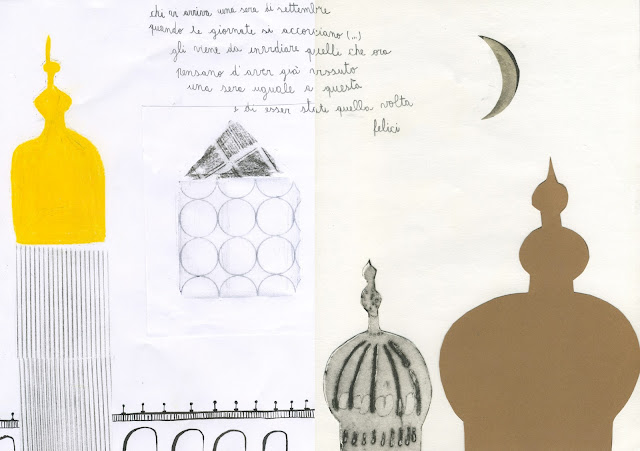 chi vi arriva una sera di settembre
quando le giornate si accorciano (...)
gli viene da invidiare quelli che ora
pensano d'aver già vissuto
una sera uguale a questa
e di esser stati quella volta
felici